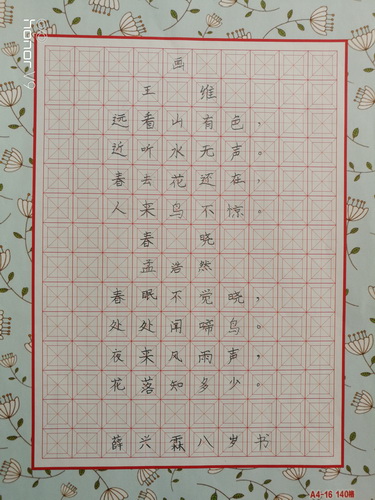 画
王维
远看山有色，
近听水无声。
春去花还在，
人来鸟不惊。
春晓
孟浩然
春眠不觉晓，
处处闻啼鸟。
夜来风雨声，
花落知多少。
薛兴霖八岁书
A4-16 140格
honor V9